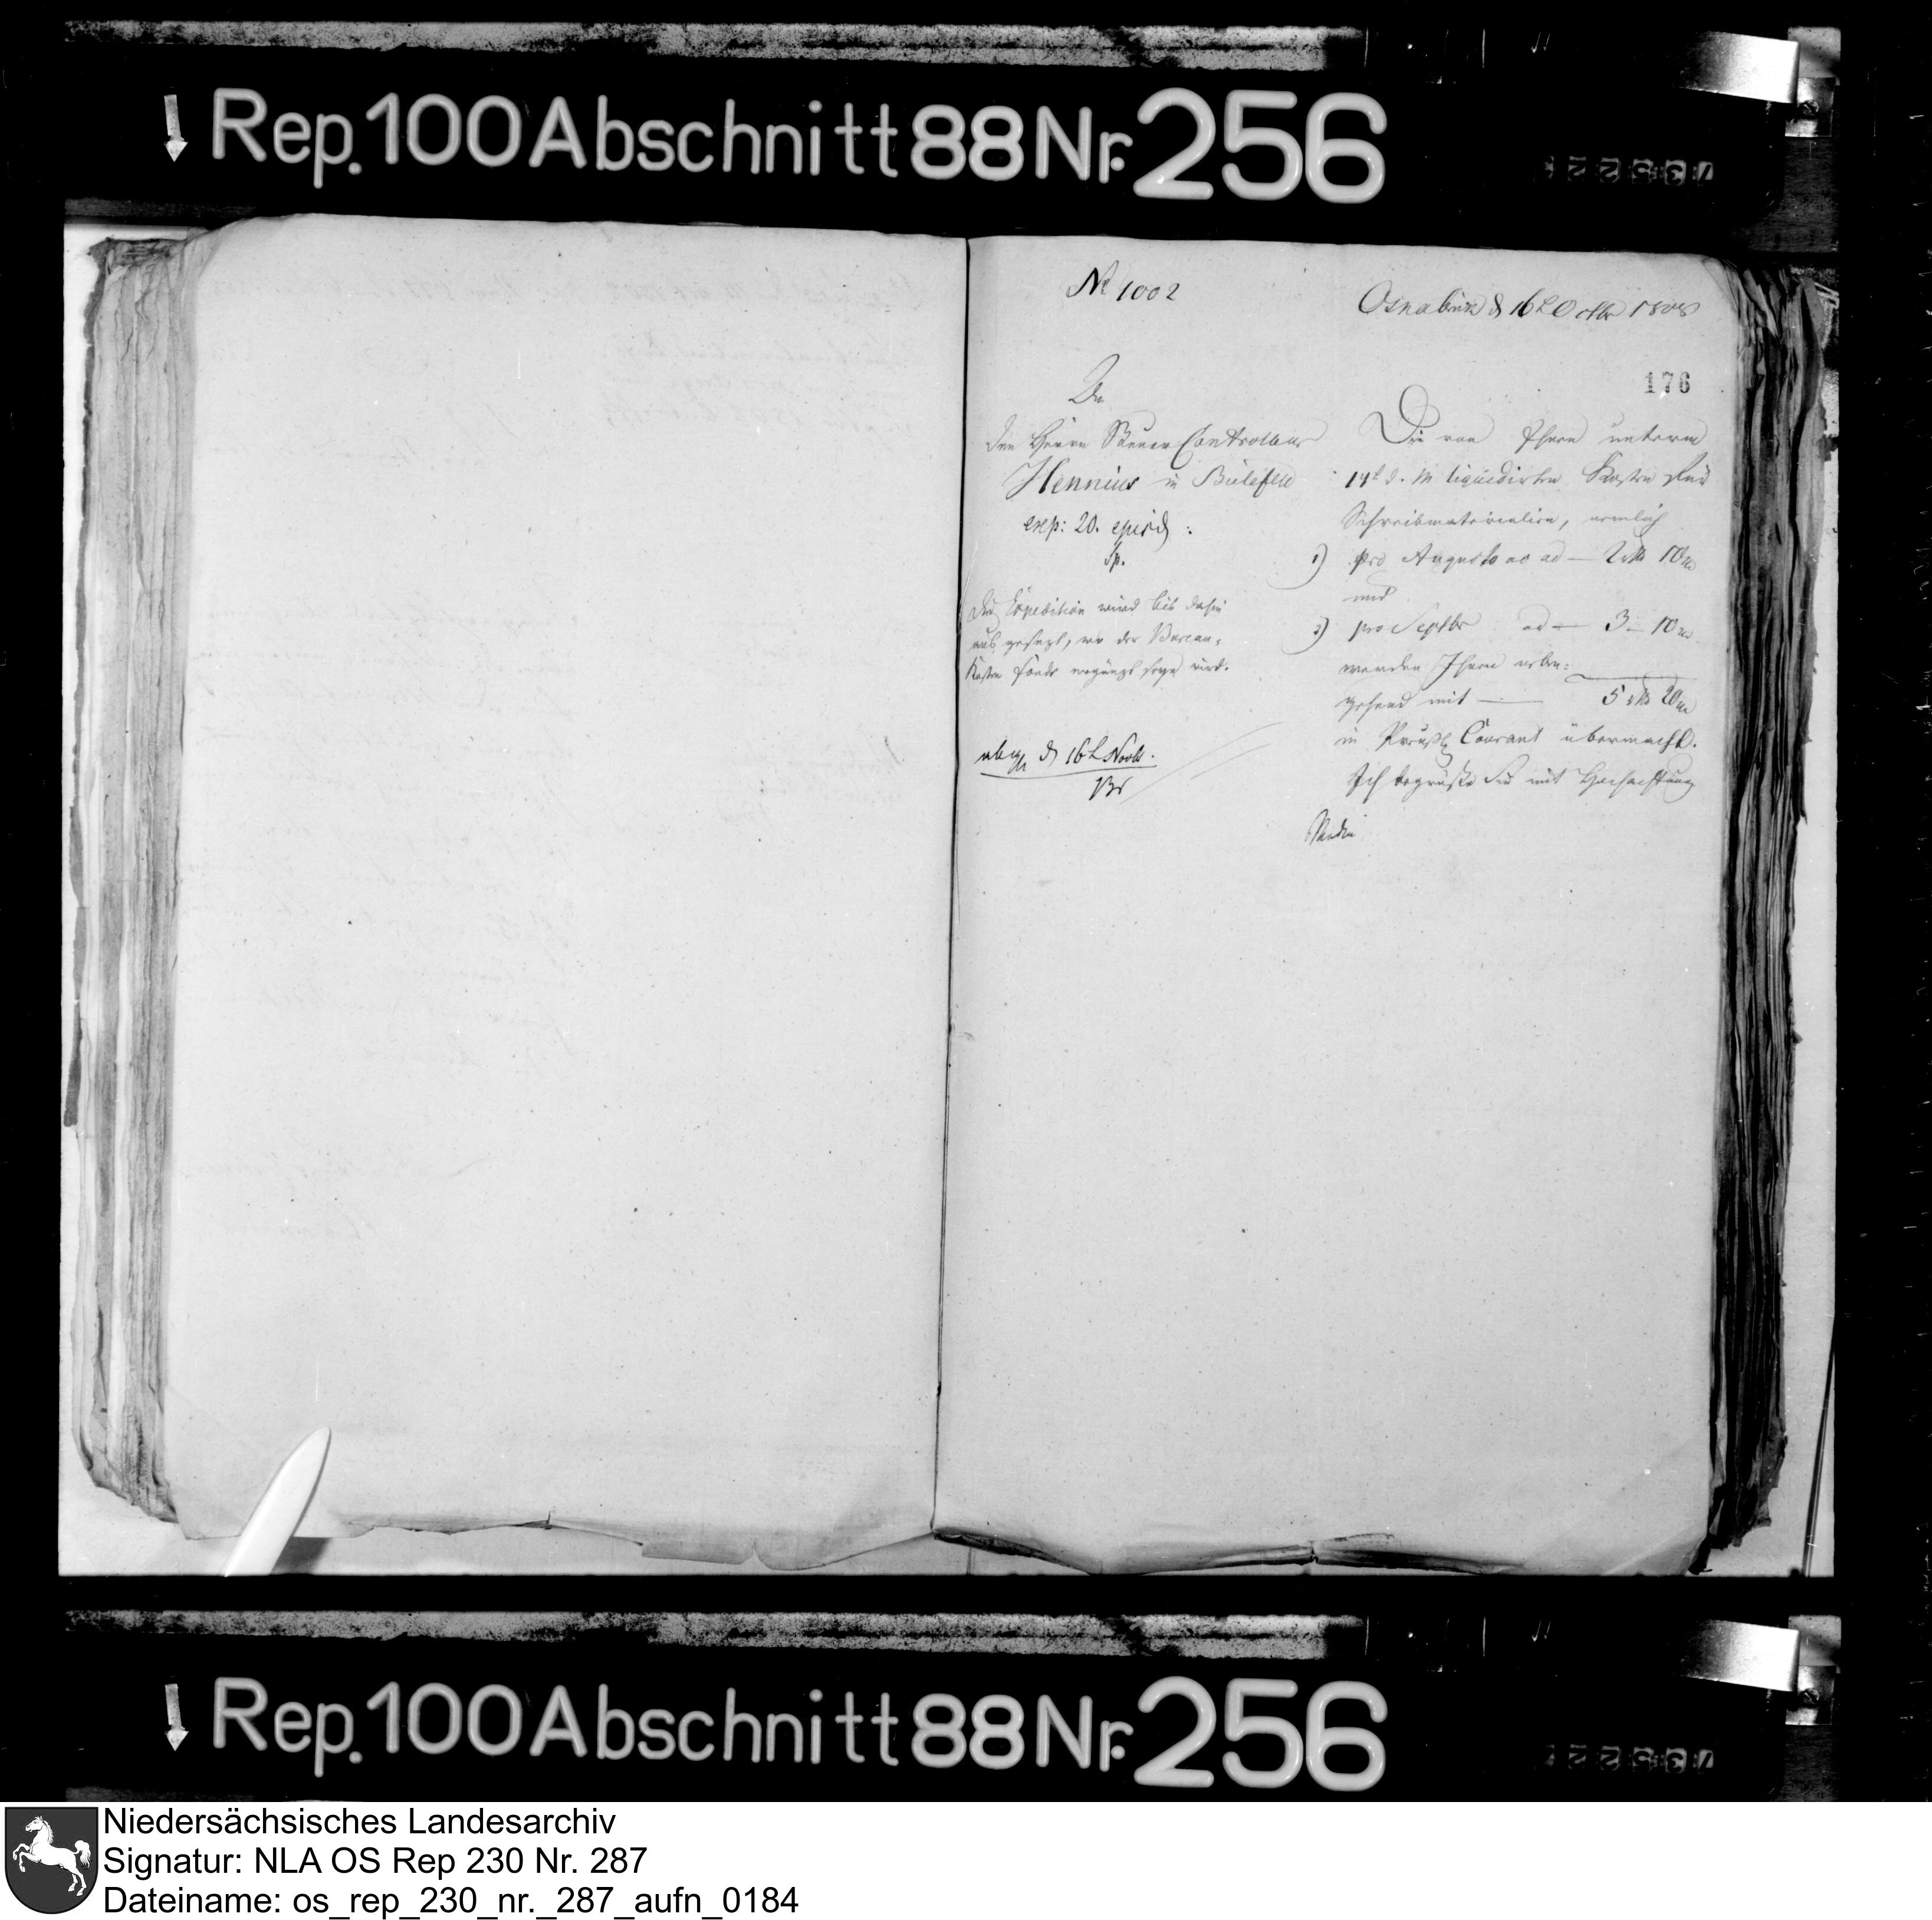 Rep. 100 Abschnitt 88 Nr. 256
No 1002
Osnabrück d 16t Octbr 1808
176
An
den Herrn Steuer Controlleur
Hennius in Bielefeld
exp: 20. ejusd :
Die Expedition wird bis dahin
aus gesetzt, wo der Bureau-
Kosten fonds ergänzt seyn wird.
abg. d 16t Novbr.
Die von Ihnen unterm
14t d. M liquidirten Kosten für
Schreibmaterialien, nemlich
1) pro Augusto ac ad — 2 rth 10
und
2) pro Septbr ad — 3 — 10
werden Ihnen neben-
gehend mit — 5 rth 20
in Preuß Courant übermacht.
Ich begrüße Sie mit Hochachtung
Rep. 100 Abschnitt 88 Nr. 256
Niedersächsisches Landesarchiv
Signatur: NLA OS Rep 230 Nr. 287
Dateiname: os_rep_230_nr._287_aufn_0184